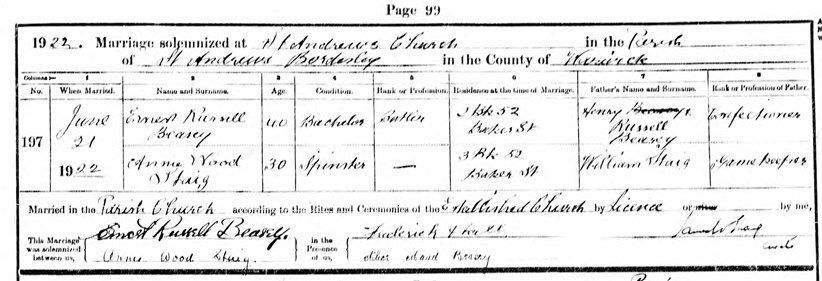 Page 99
1922. Marriage solemnized at St Andrew's Church in the Parish
of St Andrews Bordesley in the County of Warwick
Columns:— 1 2 3 4 5 6 7 8
No. When Married. Name and Surname. Age. Condition. Rank or Profession. Residence at the time of Marriage. Father's Name and Surname. Rank or Profession of Father.
197 June 21 1922
Ernest Russell Beasey 40 Bachelor Butler 2 Bk 52 Baker St Henry Russell Beasey Confectioner
Annie Wood Staig 30 Spinster — 3 Bk 52 Baker St William Staig Game keeper
Married in the Parish Church according to the Rites and Ceremonies of the Established Church by Licence or by me,
This Marriage was solemnized between us, Ernest Russell Beasey. Annie Wood Staig. in the Presence of us, Frederick Beasey